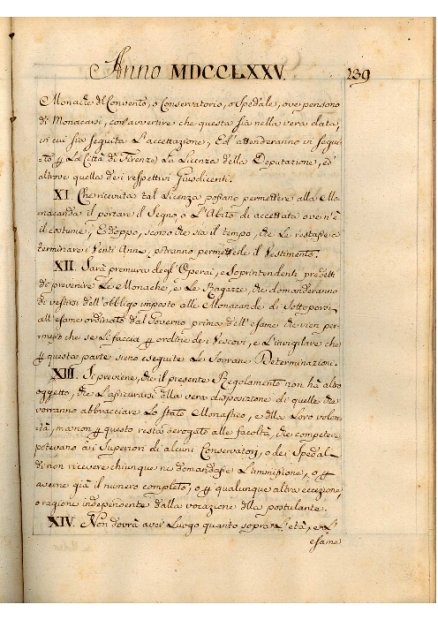 Anno MDCCLXXV. 239
Monache del Convento, o Conservatorio, o Spedale, ove pensono
di Monacarsi, con avvertire che questa sia nella vera data,
in cui sia seguita L'accettazione, Ed attenderanno in segui-
to p La Città di Firenze La Licenza della Deputazione, ed
altrove quella dei respettivi Giusdicenti.
XI. Che ricevuta tal Licenza possano permettere alla Mo-
nacanda il portare il Segno, o L'Abito di accettata ove n'è
il costume, E doppo, scorso che sia il tempo, che Le restasse a
terminare i Venti Anni, potranno permetterle il Vestimento.
XII. Sarà premura degl'Operai, e Soprintendenti predetti
di prevenire Le Monache, e Le Ragazze, che domanderanno
di vestirsi dell'obbligo imposto alle Monacande di Sottoporsi
all'esame ordinato dal Governo prima dell'esame che vien per-
messo che se Li faccia p ordine dei Vescovi, e L'invigilare che
p questa parte sieno eseguite Le Sovrane Determinazioni.
XIII. Si previene, che il presente Regolamento non hà altro
oggetto, che L'assicurarsi della vera disposizione di quelle che
vorranno abbracciare Lo stato Monastico, e della Loro volon-
tà, ma non p questo resta derogato alle facoltà, che competer
potevano ai Superiori di alcuni Conservatorj, o dei Spedal-
di non ricevere chiunque ne domandasse L'ammissione, o p
averne già il numero completo, o p qualunque altra eccezione,
o ragione independente dalla vocazione della postulante.
XIV. Non dovrà aver Luogo quanto sopra L'età, e L'
esame